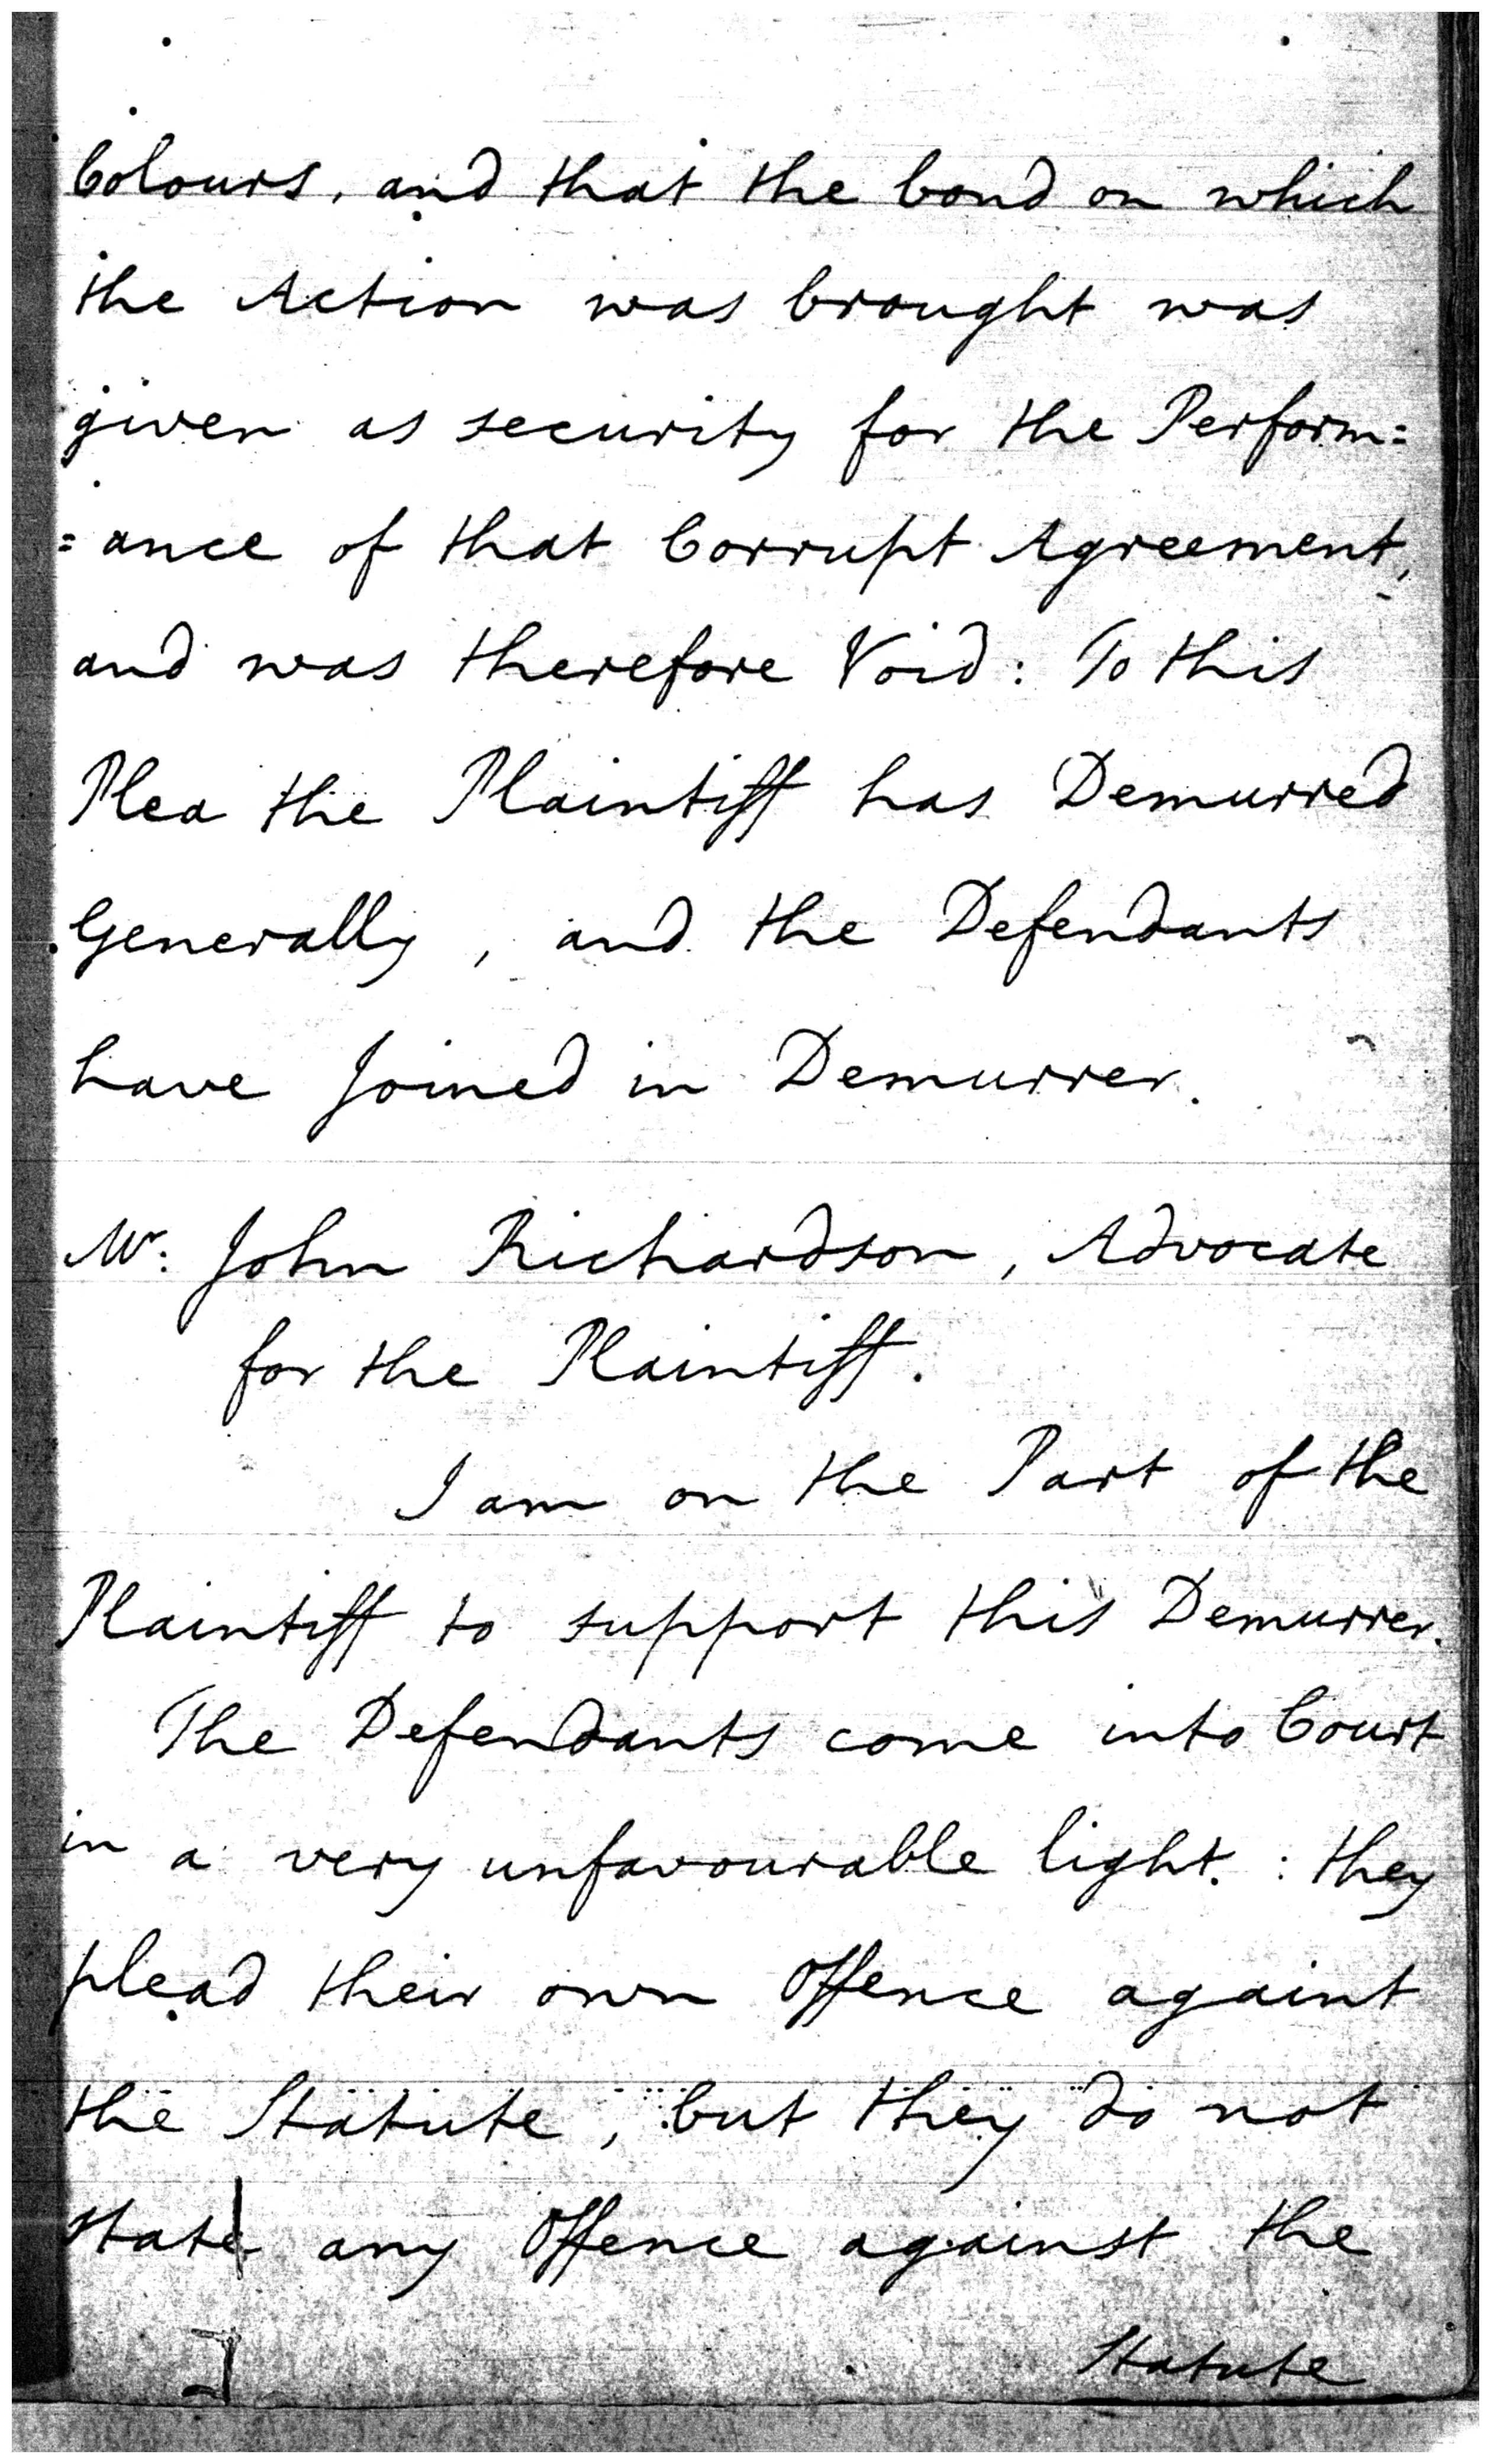 Colours, and that the bond on which
the Action was brought was
given as security for the Perform=
=ance of that Corrupt Agreement,
and was therefore Void: To this
Plea the Plaintiff has Demurred
Generally, and the Defendants
have Joined in Demurrer.
Mr: John Richardson, Advocate
for the Plaintiff.
I am on the Part of the
Plaintiff to support this Demurrer.
The Defendants come into Court
in a very unfavourable light. : they
plead their own Offence againt
the Statute, but they do not
state any Offence against the
Statute